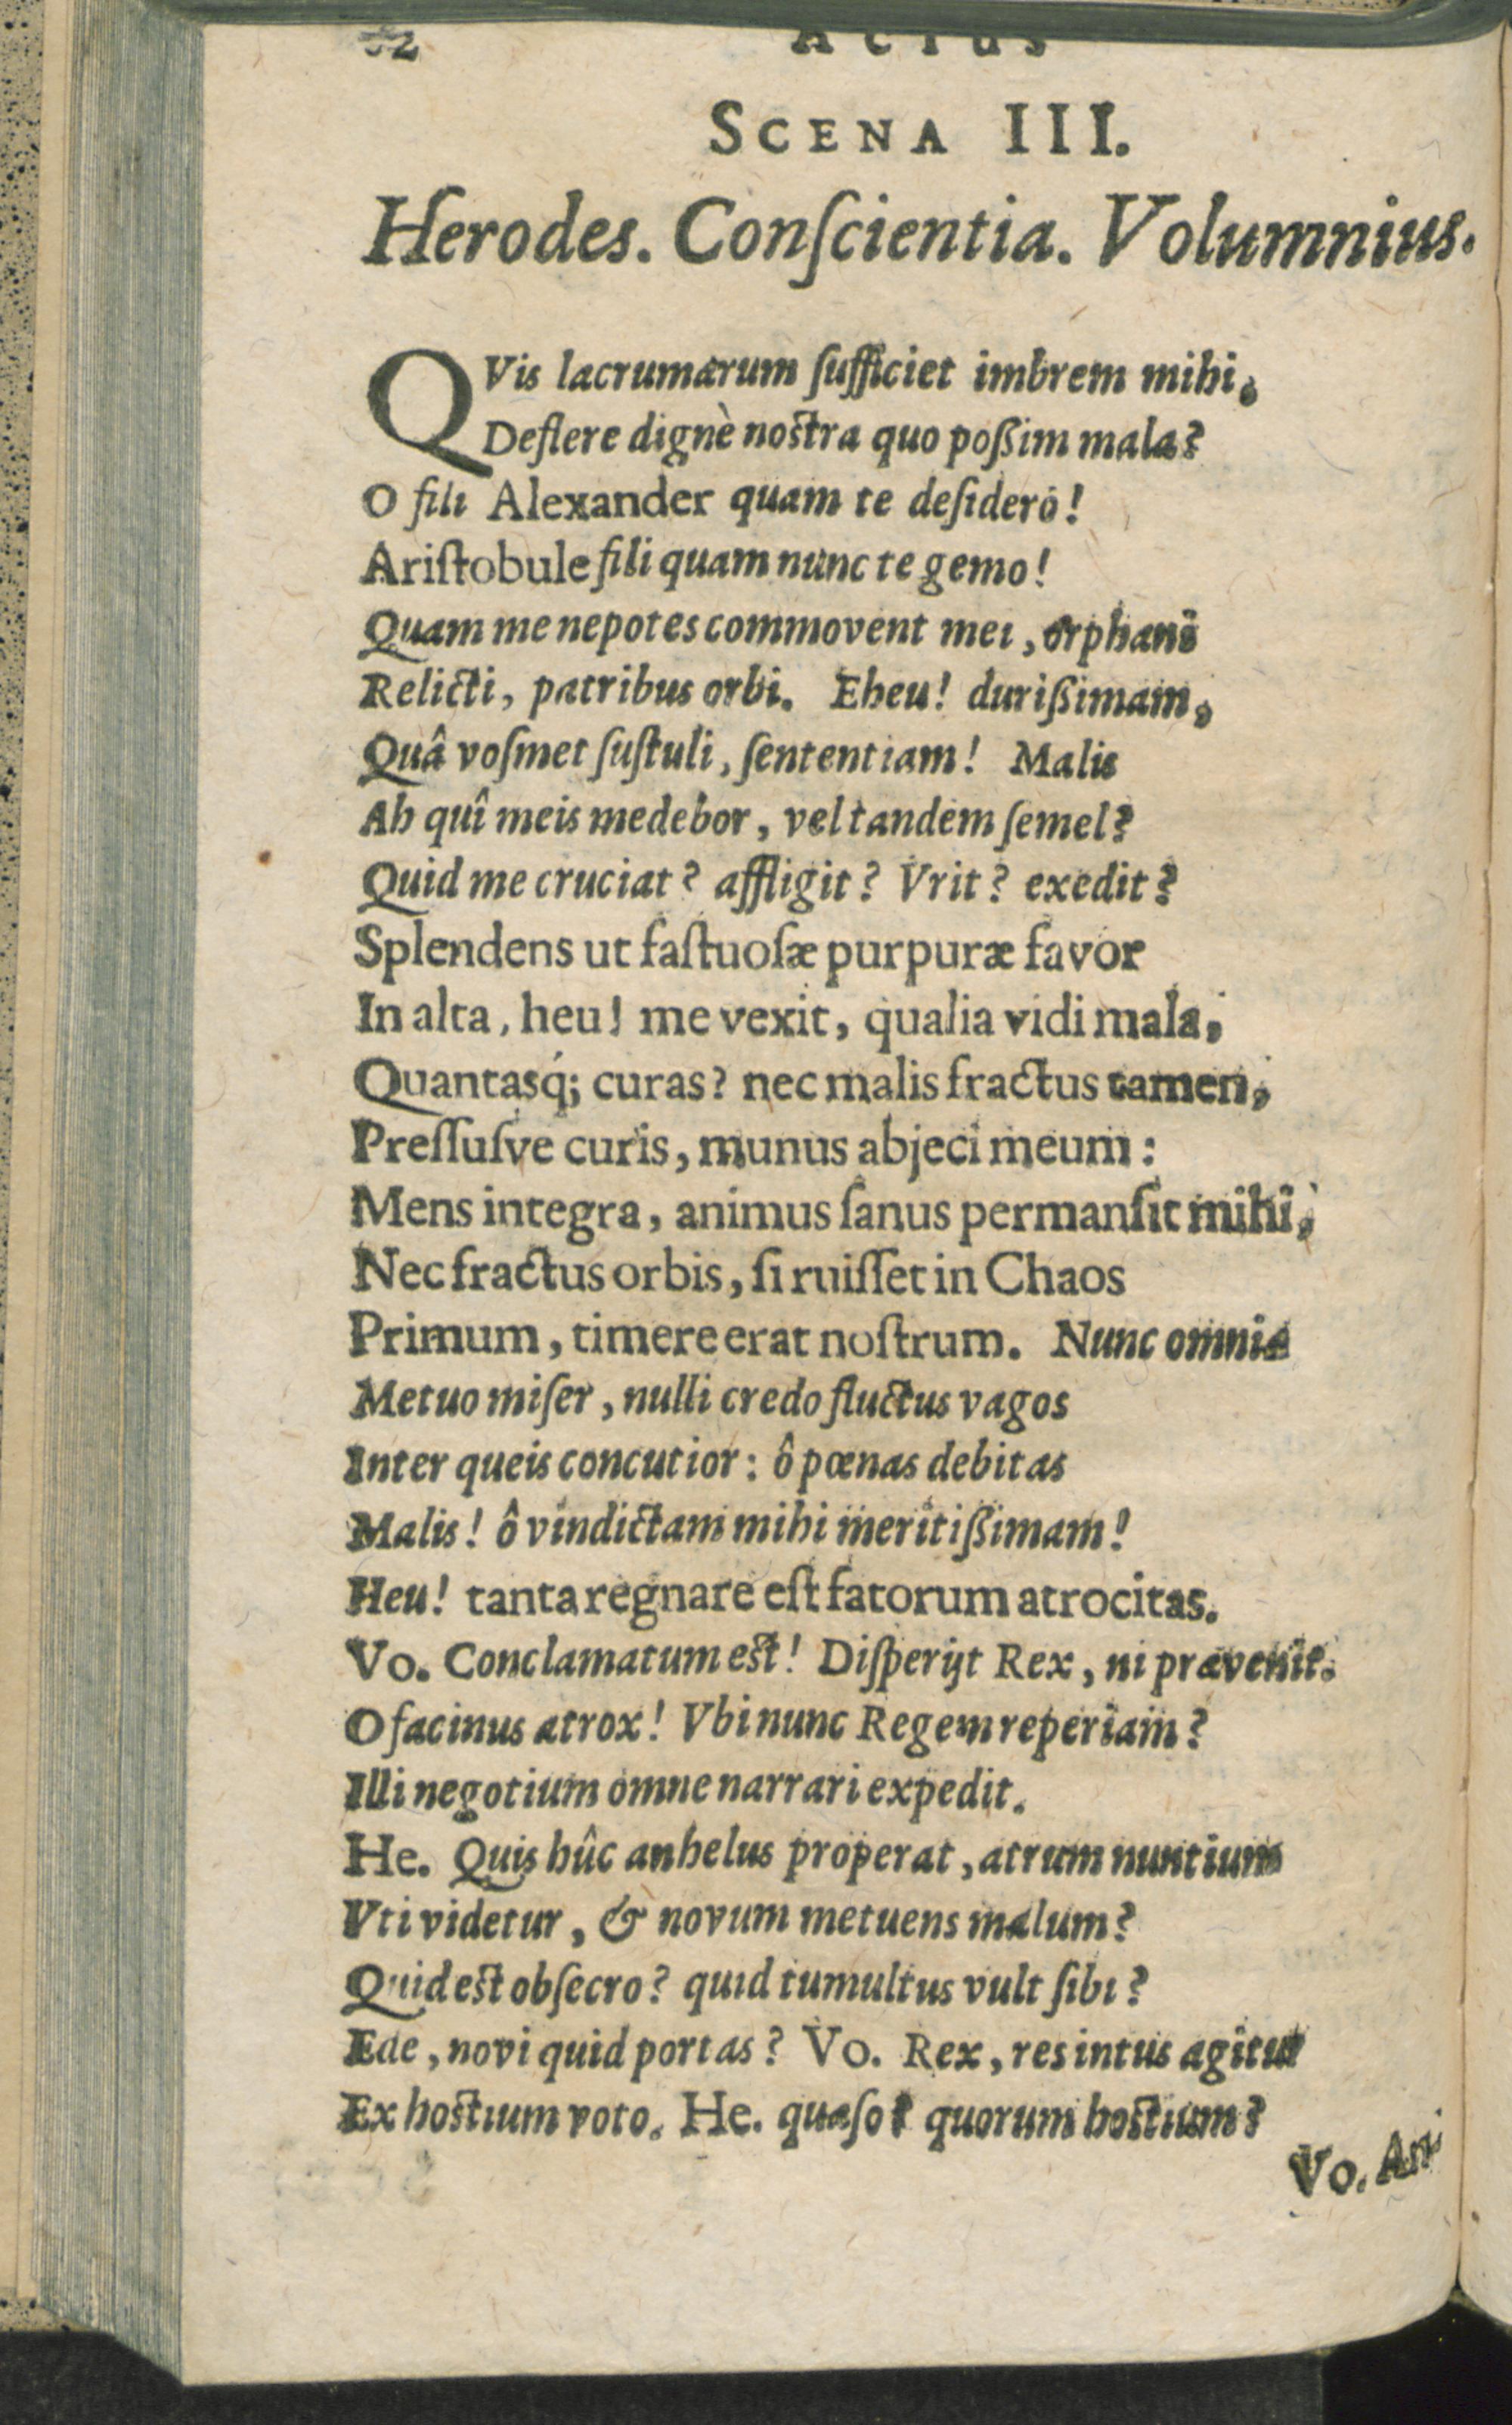 Actus
SCENA III.
Herodes. Conſcientia. Volumnius.
QVis lacrumarum ſufficiet imbrem mihi,
Deflere dignè noſtra quo poßim mala?
O fili Alexander quam te deſidero!
Ariſtobule fili quam nunc te gemo!
Quam me nepotes commovent mei, orphani
Relicti, patribus orbi. Eheu! durißimam,
Quâ voſmet ſuſtuli, ſententiam! Malis
Ah quî meis medebor, vel tandem ſemel?
Quid me cruciat? affligit? Vrit? exedit?
Splendens ut faſtuoſæ purpuræ favor
In alta, heu! me vexit, qualia vidi mala,
Quantasq́; curas? nec malis fractus tamen,
Preſſuſve curis, munus abjeci meum:
Mens integra, animus ſanus permanſit mihi,
Nec fractus orbis, ſi ruiſſet in Chaos
Primum, timere erat noſtrum. Nunc omnia
Metuo miſer, nulli credo fluctus vagos
Inter queis concutior: ô pœnas debitas
Malis! ô vindictam mihi meritißimam!
Heu! tanta regnare eſt fatorum atrocitas.
Vo. Conclamatum eſt! Diſperijt Rex, ni prævenit.
O facinus atrox! Vbi nunc Regem reperiam?
Illi negotium omne narrari expedit.
He. Quis hûc anhelus properat, atrum nuntium
Vti videtur, & novum metuens malum?
Quid eſt obſecro? quid tumultus vult ſibi?
Ede, novi quid portas? Vo. Rex, res intus agitur
Ex hoſtium voto. He. quæſo? quorum hoſtium?
Vo. An-